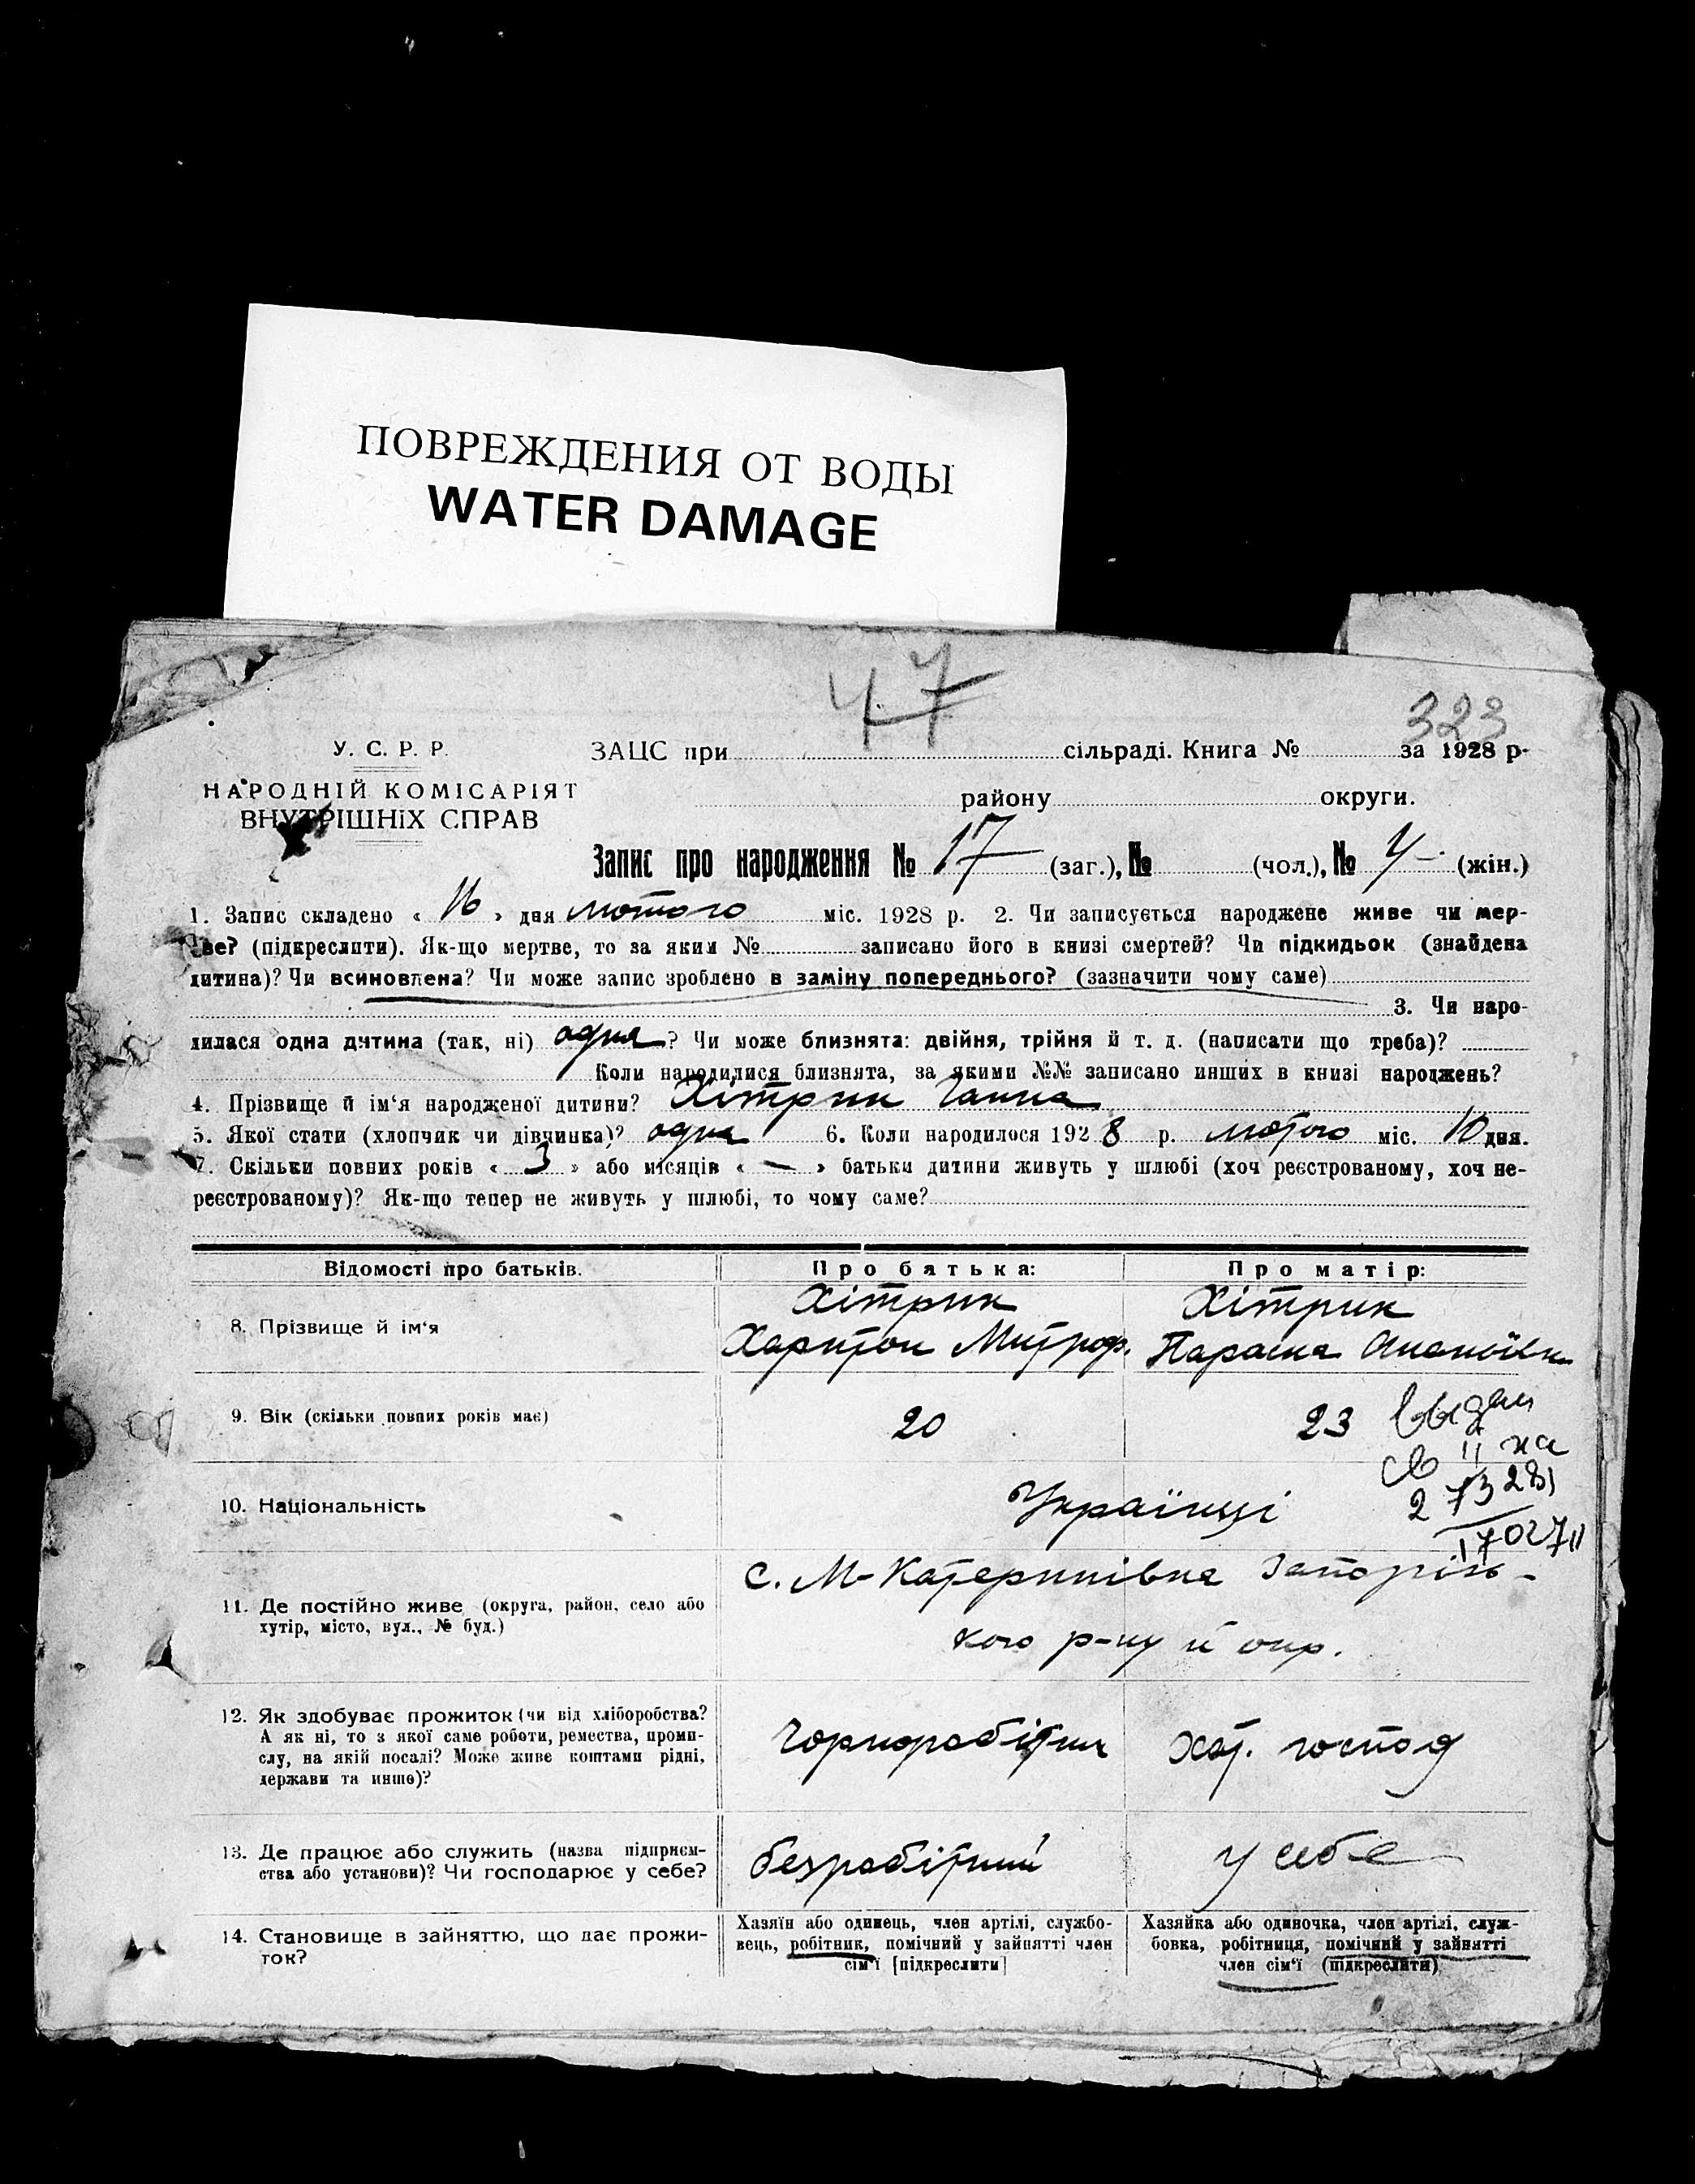 ПОВРЕЖДЕНИЯ ОТ ВОДЫ
WATER DAMAGE
47
323
У. С. Р. Р.
ЗАЦС при сільраді. Книга № за 1928 р.
НАРОДНІЙ КОМІСАРІЯТ
району округи.
ВНУТРІШНІХ СПРАВ
Запис про народження № 17 (заг.), № (чол.), № (жін.)
1. Запис складено « 16 » дня лютого міс. 1928 р. 2. Чи записується народжене живе чи мер-
тве? (підкреслити). Як-що мертве, то за яким № записано його в книзі смертей? Чи підкидьок (знайдена
дитина)? Чи всиновлена? Чи може запис зроблено в заміну попереднього? (зазначити чому саме)
3. Чи наро-
дилася одна дитина (так, ні) одна? Чи може близнята: двійня, трійня й т. д. (написати що треба)?
Коли народилися близнята, за якими №№ записано инших в книзі народжень?
4. Прізвище й ім'я народженої дитини? Хітрик Ганна
5. Якої стати (хлопчик чи дівчинка)? одна 6. Коли народилося 1928 р. лютого міс. 10 дня.
7. Скільки повних років « 3 » або місяців « — » батьки дитини живуть у шлюбі (хоч реєстрованому, хоч не-
реєстрованому)? Як-що тепер не живуть у шлюбі, то чому саме?
Відомості про батьків. Про батька: Про матір:
Хітрик Хітрик
8. Прізвище й ім'я Харитон Митроф. Параска Ананоївн
9. Вік (скільки повних років має) 20 23
10. Національність Українці
11. Де постійно живе (округа, район, село або
хутір, місто, вул., № буд.)
с. М-Катеринівка Запоріз-
кого р-ну й окр.
12. Як здобуває прожиток (чи від хліборобства?
А як ні, то з якої саме роботи, ремества, проми-
слу, на якій посаді? Може живе коштами рідні,
держави та инше)?
Чорноробітник хат. господ
13. Де працює або служить (назва підприєм-
ства або установи)? Чи господарює у себе?
безробітний у себе
14. Становище в зайняттю, що дає прожи-
ток?
Хазяїн або одинець, член артілі, службо-
вець, робітник, помічний у зайнятті член
сім'ї [підкреслити]
Хазяйка або одиночка, член артілі, служ-
бовка, робітниця, помічний у зайнятті
член сім'ї (підкреслити)